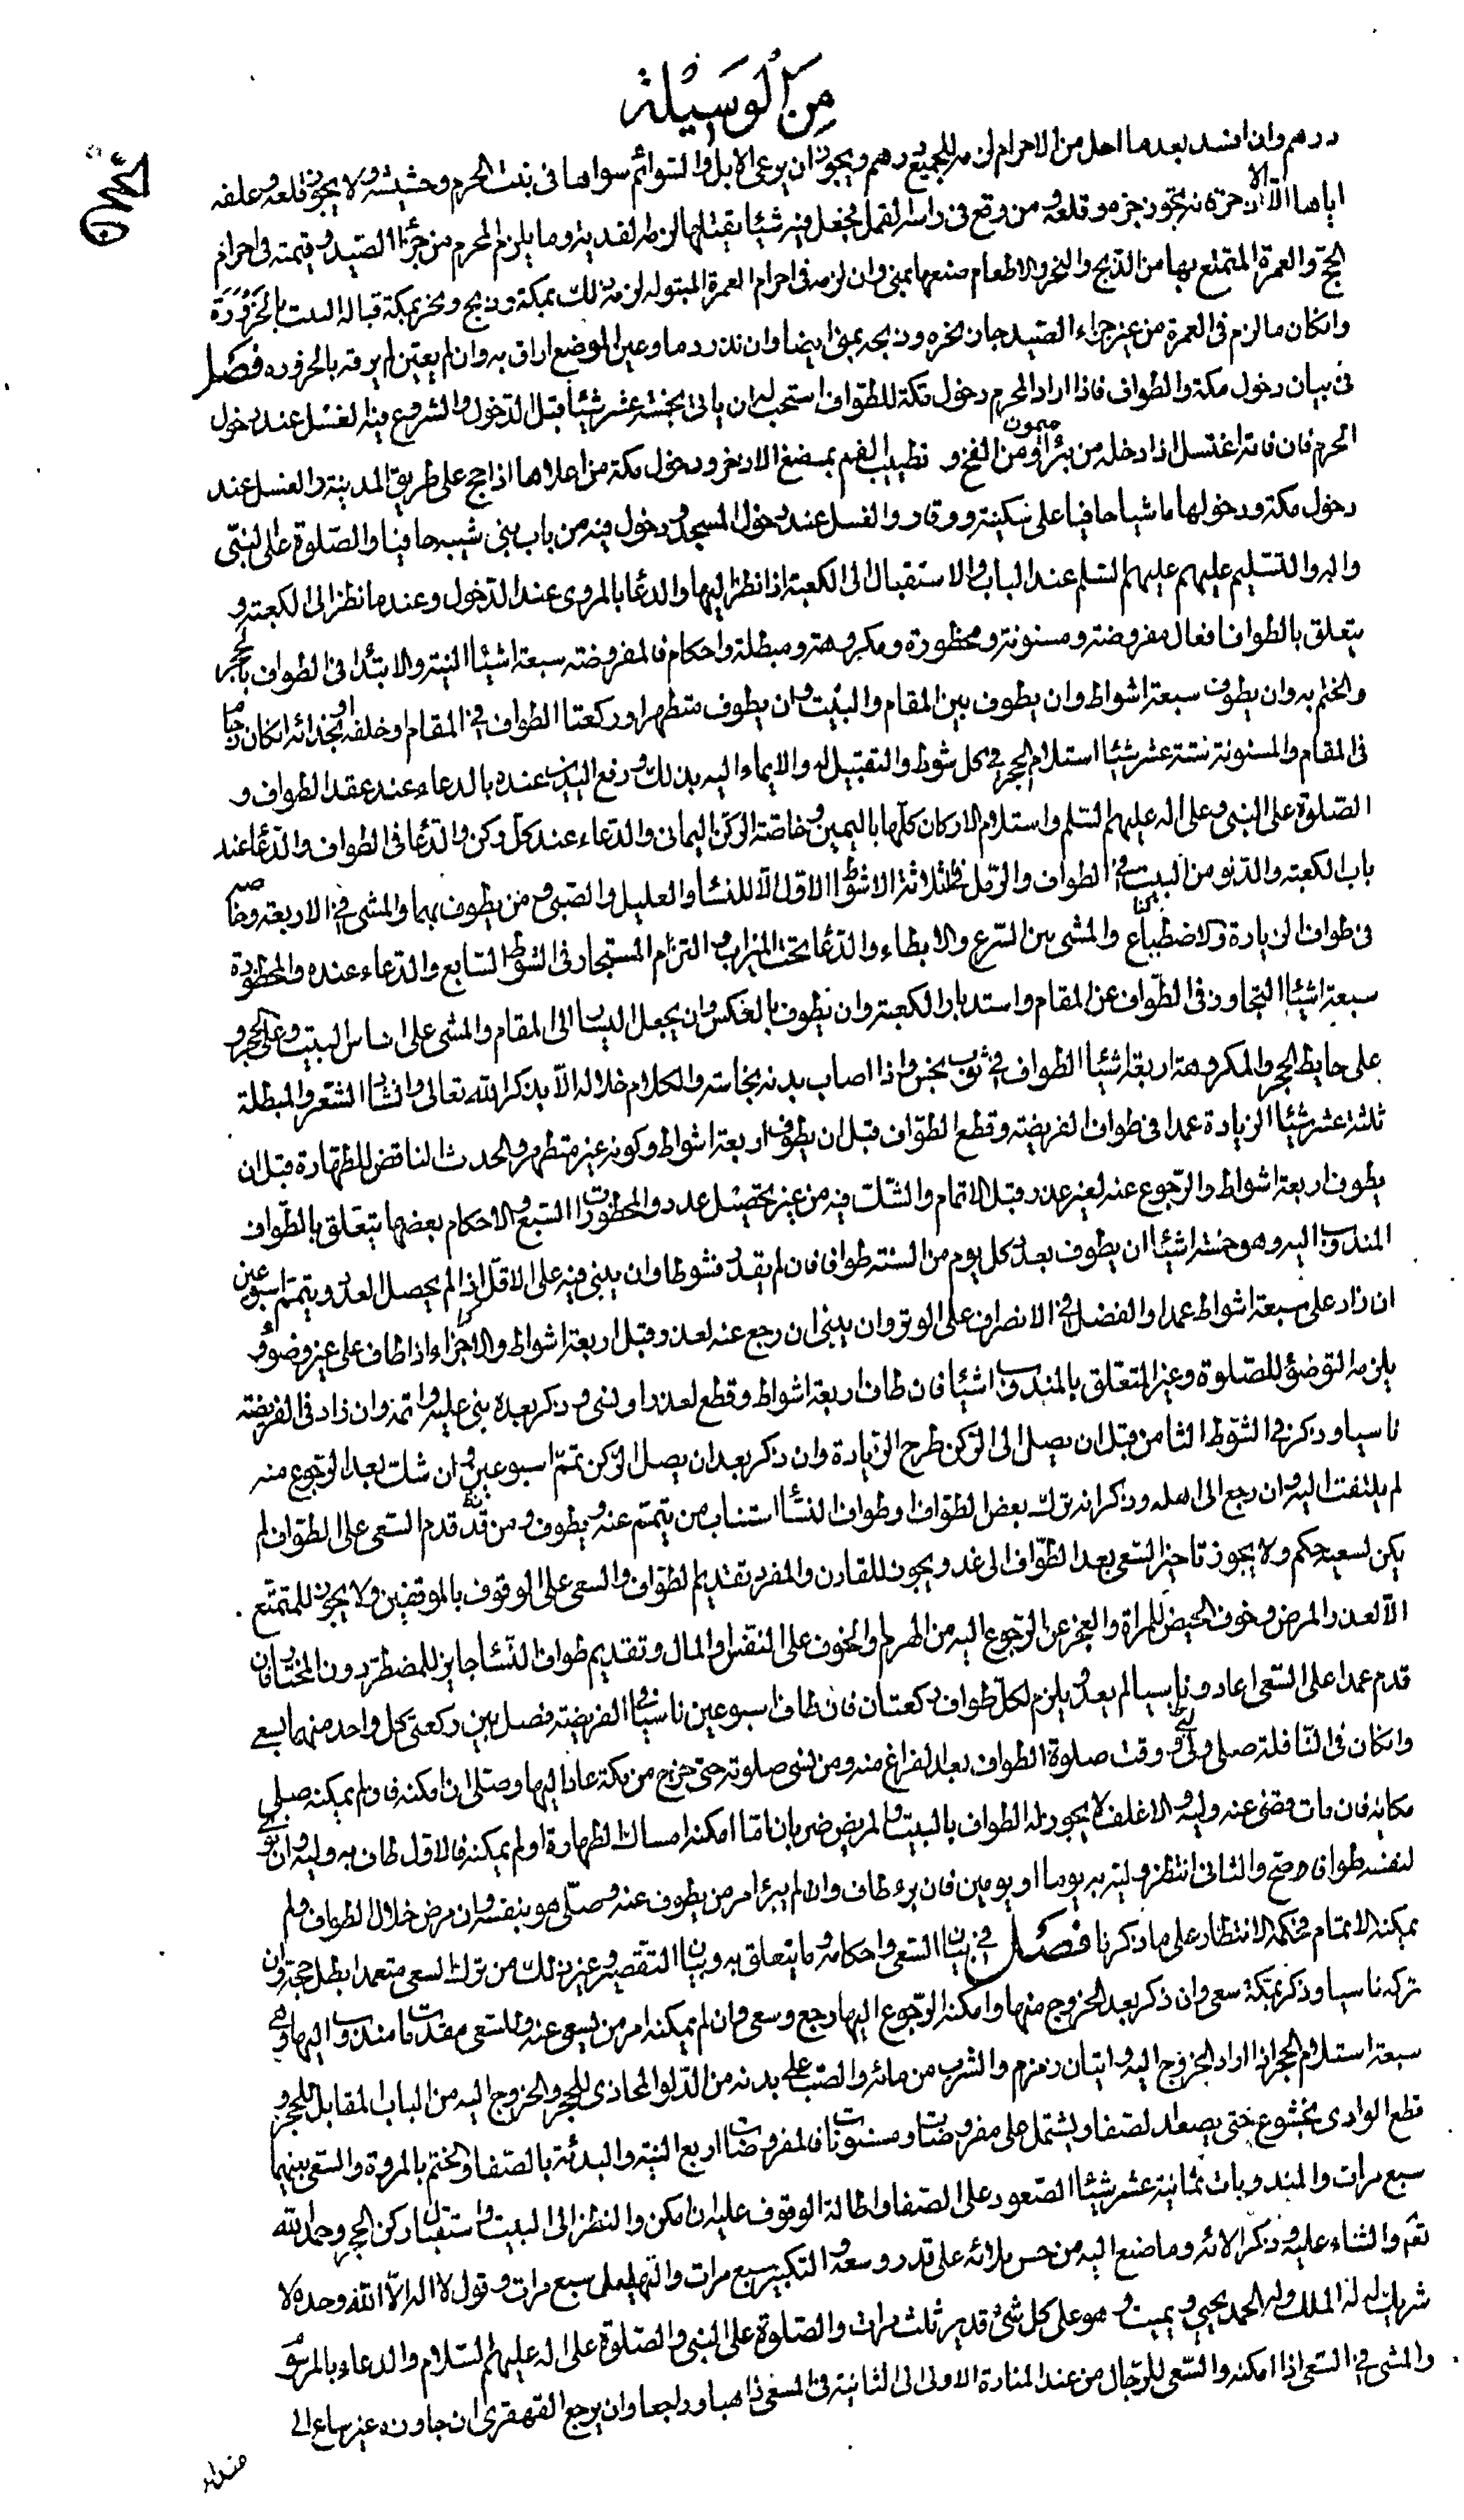 من الوسيلة
الحج
درهم وان افسد بعدما احل من الاحرام لزمه للجميع درهم ويجوز ان يرعى الابل والسوائم سواها فى نبت الحرم وحشيشه ولا يجوز قلعه وعلفه
اياها الا الاذخر فانه يجوز جزه وقلعه ومن وقع فى راسه القمل يجعل فيه شيئا يقتلها لزمه الفدية وما يلزم المحرم من جزاء الصيد وقيمته فى احرام
الحج والعمرة المتمتع بها من الذبح والنحر والاطعام صنعها بمنى وان لزمه فى احرام العمرة المبتولة لزمه ذلك بمكة وذبح ونحر بمكة قبالة البيت بالحزورة
وان كان ما لزم فى العمرة من غير جزاء الصيد جاز نحره وذبحه بمنى ايضا وان نذر دما وعين الموضع اراق به وان لم يعين لم يرقه بالحزورة فصل
فى بيان دخول مكة والطواف فاذا اراد المحرم دخول مكة للطواف استحب له ان ياتى بخمسة عشر شيئا قبل الدخول والشروع فيه الغسل عند دخول
الحرم فان فاته اغتسل اذا دخله من بئر ميمون او من الفخ و تطييب الفم بمضغ الاذخر ودخول مكة من اعلاها اذا حج على طريق المدينة والغسل عند
دخول مكة ودخولها ماشيا حافيا على سكينة ووقار والغسل عند دخول المسجد ودخوله فيه من باب بنى شيبه حافيا والصلوة على النبى
واله والتسليم عليهم عليهم السلم عند الباب والاستقبال الى الكعبة اذا نظر اليها والدعا بالمروى عند الدخول وعند ما نظر الى الكعبة و
يتعلق بالطواف افعال مفروضة ومسنونة ومحظورة ومكروهة ومبطلة واحكام فالمفروضة سبعة اشيئا النية والابتدا فى الطواف بالحجر
والختم به وان يطوف سبعة اشواط وان يطوف بين المقام والبيت وان يطوف متطهرا وركعتا الطواف فى المقام او خلفه او بحذائه ان كان زحاما
فى المقام والمسنونة ستة عشر شيئا استلام الحجر فى كل شوط والتقبيل له والايماء اليه بذلك ورفع اليدين عنده بالدعاء عند عقد الطواف و
الصلوة على النبى وعلى اله عليهم السلم واستلام الاركان كلها باليمين وخاصة الركن اليمانى والدعاء عند كل ركن والدعا فى الطواف والدعا عند
باب الكعبة والدنو من البيت فى الطواف والرمل فى ثلاثة الاشواط الاول الا للنسا والعليل والصبى ومن يطوف بهما والمشى فى الاربعة وخاصة
فى طواف الزيارة وكذا الاضطباع والمشى بين السرع والابطاء والدعا تحت الميزاب والتزام المستجار فى الشوط السابع والدعاء عنده والمحظورة
سبعة اشيئا التجاوز فى الطواف عن المقام واستدبار الكعبة وان يطوف بالعكس وان يجعل اليسار الى المقام والمشى على اساس البيت وعلى الحجر و
على حايط الحجر والمكروهة اربعة اشيئا الطواف فى ثوب نجس واذا اصاب بدنه نجاسة والكلام خلاله الا بذكر الله تعالى وانشاد الشعر والمبطلة
ثلثة عشر شيئا الزيادة عمدا فى طواف الفريضة وقطع الطواف قبل ان يطوف اربعة اشواط وكونه غير متطهر والحدث الناقض للطهارة قبل ان
يطوف اربعة اشواط والرجوع عنه لغير عذر قبل الاتمام والشك فيه من غير تحصيل عدد والمحظورات السبع والاحكام بعضها يتعلق بالطواف
المندوب اليه وهو خمسة اشيئا ان يطوف بعدد كل يوم من السنة طوافا فان لم يقدر فشوطا وان يبنى فيه على الاقل اذا لم يحصل العدد ويتمم اسبوعين
ان زاد على سبعة اشواط عمدا والفضل فى الانصراف على الوتر وان يبنى ان رجع عنه لعذر قبل اربعة اشواط والاجزاء اذا طاف على غير وضوء و
يلزمه التوضؤ للصلوة وغير المتعلق بالمندوب اشيئا فان طاف اربعة اشواط وقطع لعذر او نسى وذكر بعده بنى عليه واتمه وان زاد فى الفريضة
ناسيا وذكر فى الشوط الثامن قبل ان يصل الى الركن طرح الزيادة وان ذكر بعد ان يصل الركن تمم اسبوعين وان شك بعد الرجوع منه
لم يلتفت اليه وان رجع الى اهله وذكر انه ترك بعض الطواف او طواف النسأ استناب من يتمم عنه ويطوف ومن قدم السعى على الطواف لم
يكن لسعيه حكم ولا يجوز تاخير السعى بعد الطواف الى غد ويجوز للقارن والمفرد تقديم الطواف والسعى على الوقوف بالموقفين ولا يجوز للمتمتع
الا لعذر المرض وخوف الحيض للمراة والعجز عن الرجوع اليه من الهرم والخوف على النفس والمال وتقديم طواف النسأ جايز للمضطر دون المختار فان
قدم عمدا على السعى اعاد وناسيا لم يعد ويلزم لكل طواف ركعتان فان طاف اسبوعين ناسيا فى الفريضة فصل بين ركعتى كل واحد منهما بسعى
وان كان فى النافلة صلى ولى وقت صلوة الطواف بعد الفراغ منه ومن نسى صلوته حتى خرج من مكة عاد اليها وصلى ان امكنه فان لم يمكنه صلى
مكانه فان مات قضى عنه وليه والاغلف لا يجوز له الطواف بالبيت والمريض ضربان اما امكنه امساك الطهارة او لم يمكنه فالاول طاف به وليه وان نوى
لنفسه طوافا صح والثانى انتظر وليه به يوما او يومين فان برء طاف وان لم يبرا امر من يطوف عنه وصلى هو بنفسه وان مرض خلال الطواف ولم
يمكنه الاتمام فحكمه الانتظار على ما ذكرنا فصل فى بيان السعى واحكامه وما يتعلق به وبيان التقصير وغير ذلك من ترك السعى متعمدا بطل حجه وان
تركه ناسيا وذكر بمكة سعى وان ذكر بعد الخروج منها وامكنه الرجوع اليها رجع وسعى وان لم يمكنه امر من يسعى عنه وللسعى مقدمات مندوب اليها وهى
سبعة استلام الحجر اذا اراد الخروج اليه واتيان زمزم والشرب من مائه والصب على بدنه من الدلو المحاذى للحجر والخروج اليه من الباب المقابل للحجر و
قطع الوادى بخشوع حتى يصعد الصفا ويشتمل على مفروضات ومسنونات فالمفروضات اربع النية والبدئة بالصفا والختم بالمروة والسعى بينهما
سبع مرات والمندوبات ثمانية عشر شيئا الصعود على الصفا واطالة الوقوف عليه ان امكن والنظر الى البيت واستقبال ركن الحجر وحمد الله
تعم والثناء عليه وذكر الائه وما صنع اليه من حسن بلائه على قدر وسعه والتكبير سبع مرات والتهليل سبع مرات وقول لا اله الا الله وحده لا
شريك له له الملك وله الحمد يحيى ويميت وهو على كل شئ قدير ثلث مرات والصلوة على النبى والصلوة على اله عليهم السلام والدعاء بالمرسوم
والمشى فى السعى اذا امكنه والسعى للرجال من عند المنارة الاولى الى الثانية فى المسعى ذاهبا وراجعا وان يرجع القهقرى ان جاوزه غير ساع الى